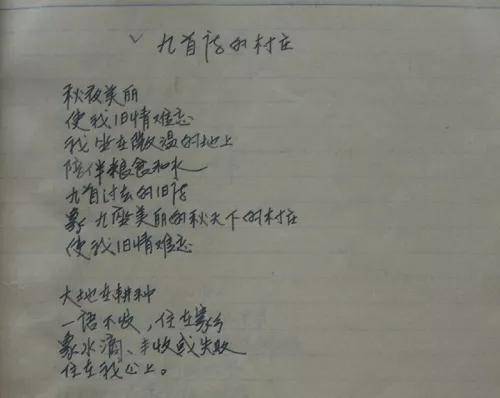 九首诗的村庄
秋夜美丽
使我旧情难忘
我坐在微温的地上
陪伴粮食和水
九首过去的旧诗
象九座美丽的秋天下的村庄
使我旧情难忘
大地在耕种
一语不发，住在家乡
象水滴、丰收或失败
住在我心上。